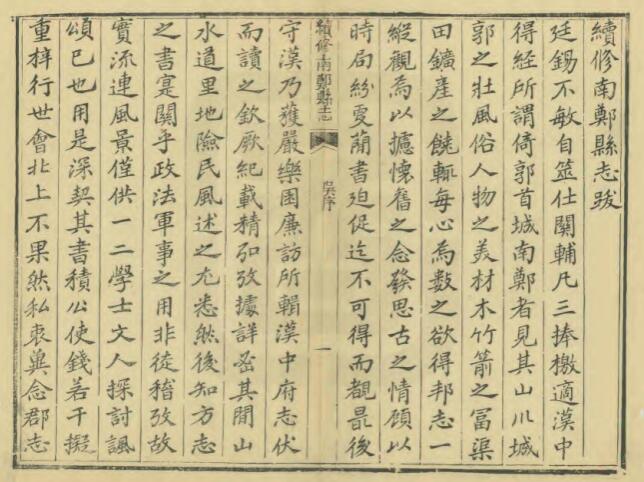 續修南鄭縣志跋
廷錫不敏自筮仕關輔凡三捧檄適漢中
得經所謂倚郭首城南鄭者見其山川城
郭之壯風俗人物之美材木竹箭之富渠
田鑛產之饒輒每心焉數之欲得邦志一
縱觀焉以攄懷舊之念發思古之情顧以
時局紛更蕑書迫促迄不可得而覩最後
續修南鄭縣志
吳序
一
守漢乃獲嚴樂園廉訪所輯漢中府志伏
而讀之欽厥紀載精弘攷據詳密其閒山
水道里地險民風述之尤悉然後知方志
之書寔關乎政法軍事之用非徒稽攷故
實流連風景僅供一二學士文人探討諷
頌已也用是深契其書積公使錢若干擬
重梓行世會北上不果然私衷冀念郡志